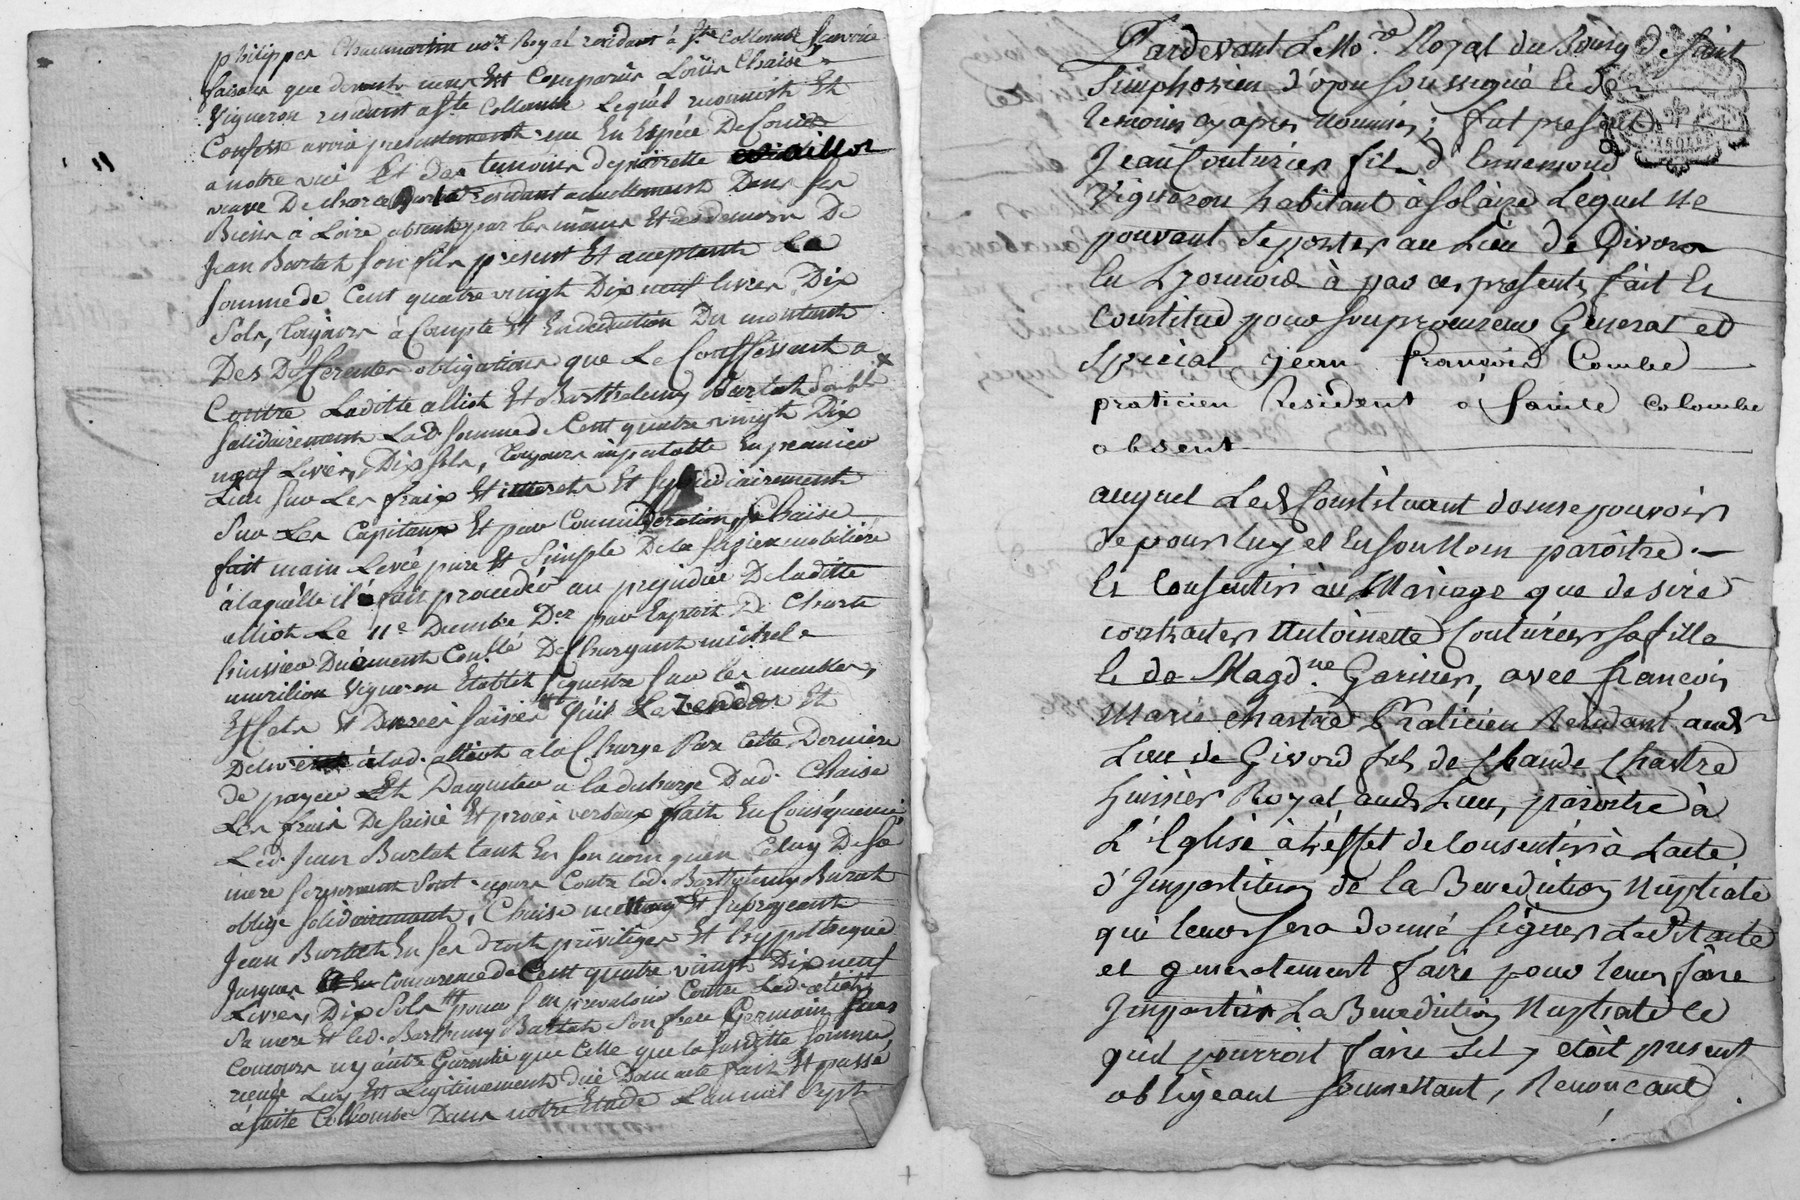 philipper Chaumartin no.re Royal residant à Ste Collombe
faisons que devant nous Est Comparu Loüis Chaise
Vigneron residant a Ste Collombe Lequel reconnoit Et
Confesse avoir presentement reçu En Espéce De Cours
a notre vüe Et des temoins de pierrette
veuve De residant actuellement Dans ses
Biens à Loire absente par les mêmes Et des deniers De
Jean Burtat son fils présent Et acceptant La
somme de Cent quatre vingt Dix neuf livres Dix
Sols, toujours à Compte Et En deduction Du montant
Des Differentes obligations que Le Confessant a
Contre Laditte alliot Et Barthelemy Burtat
solidairement Lad. somme de Cent quatre vingt Dix
neuf Livres, Dix sols, toujours imputable En premier
Lieu sur Les fraix Et interets Et subsidiairement
Sur Les Capitaux Et par Consideration Chaise
fait main Levée pure Et Simple De la saisie mobiliére
à laquelle il a fait procéder au prejudice De laditte
alliot Le 11e Decembre D.er par Exploit De Chartre
huissier Duëment Conllé Dechargeant michel
murilion Vigneron Etablit sequestre sur les meubles,
Effets Et Denrées saisies qu'il Le Et
Delivre à lad. alliot a la Charge Par Cette Derniére
de payer Et Daquiter a la decharge Dud. Chaise
Les frais De saisie Et procès verbaux fait En Conséquence
Led. Jean Burtat tant En son nom quen Celuy De sa
mere Contre led. Barthelemy Burtat
oblige solidairement, Chaise mettant Et subrogeant
Jean Burtat En ses droits priviléges Et hypothecque
Jusques En Concurence de Cent quatre vingt Dix neuf
Livres, Dix Sols pour s'en prevaloir Contre Lad. alliot
Sa mere Et led. Barthelemy Burtat Son frere Germain sans
Concours ny autre Garentie que Celle que la susditte somme
reçüe Luy Est Legitimement düe Dont acte fait Et passé
à ste Collombe Dans notre Etude L'an mil sept
Pardevant Le No.re Royal du Bourg de saint
Simphorien d'ozon soussigné et de
temoins cy après nommés; fut present
Jean Couturier fils d'Ennemond
Vigneron habitant à solaize Lequel ne
pouvant se porter au Lieu de Givors
En Lyonnois à par ces presentes fait et
Constitué pour son procureur General et
special jean françois Combe
praticien résident à sainte colombe
absent
auquel Led. Constituant donne pouvoir
de pour luy et En son Nom parôitre
et Consentir au Mariage que desire
contracter Antoinette Couturier sa fille
et de Magd.ne Garnier, avec françois
marie chartre Praticien Residant aud.
Lieu de Givors fils de Claude Chartre
huissier Royal aud. Lieu, parôitre à
L'Eglise à L'effet de Consentir à L'acte
d'Jmpartition de la Benediction Nuptiale
qui leur sera donné signer Laditte acte
et generalement faire pour leur faire
Jmpartir La Benediction Nuptiale ce
quil pourroit faire sil y étoit present
obligeant soumettant, Renoncant